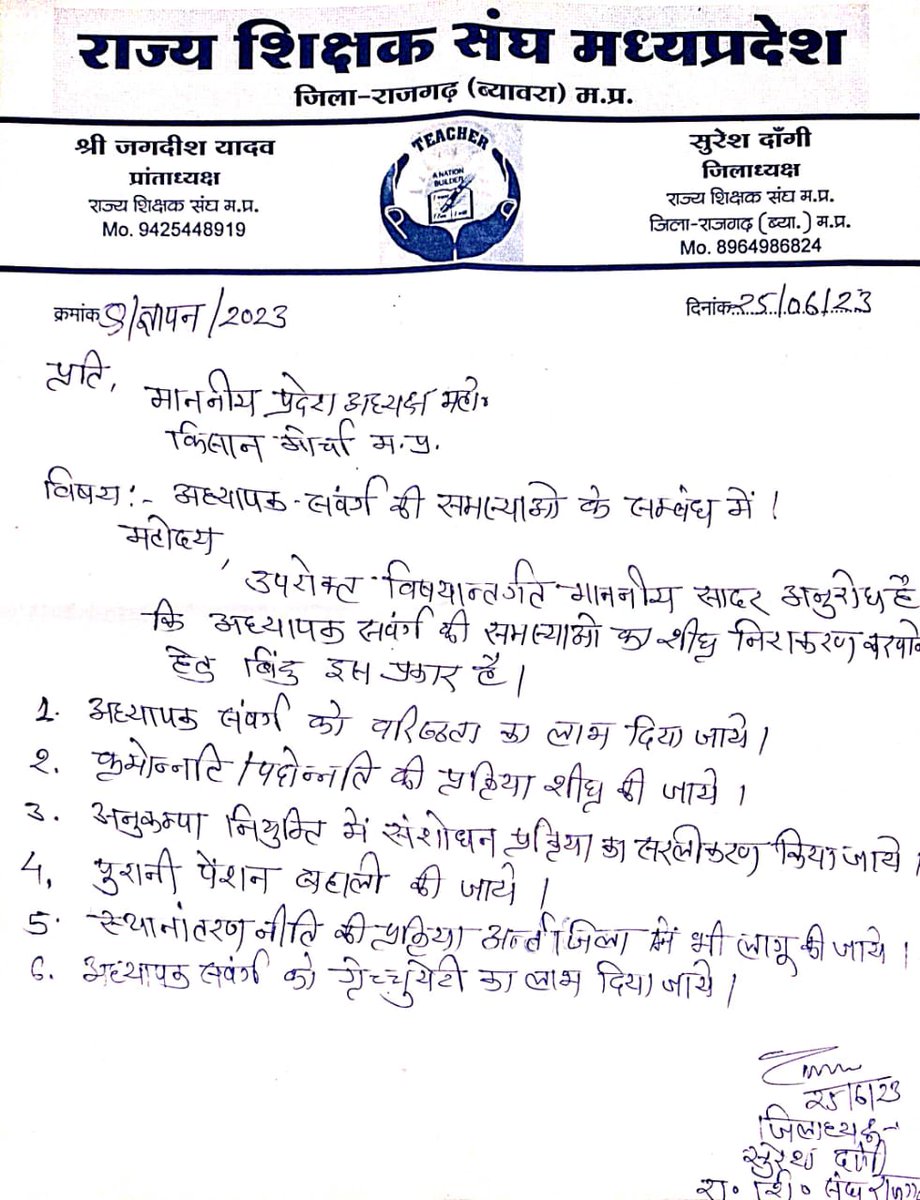 राज्य शिक्षक संघ मध्यप्रदेश
जिला-राजगढ़ (ब्यावरा) म.प्र.
श्री जगदीश यादव
प्रांताध्यक्ष
राज्य शिक्षक संघ म.प्र.
Mo. 9425448919
TEACHER
A NATION
BUILDER
सुरेश दाँगी
जिलाध्यक्ष
राज्य शिक्षक संघ म.प्र.
जिला-राजगढ़ (ब्या.) म.प्र.
Mo. 8964986824
क्रमांक /ज्ञापन/2023
दिनांक 25/06/23
प्रति,
माननीय प्रदेश अध्यक्ष महो॰
किसान मोर्चा म.प्र.
विषय:- अध्यापक संवर्ग की समस्याओ के सम्बंध में।
महोदय,
उपरोक्त विषयान्तर्गत माननीय सादर अनुरोध है
कि अध्यापक संवर्ग की समस्याओ का शीघ्र निराकरण करवाने
हेतु बिंदु इस प्रकार है।
1. अध्यापक संवर्ग को वरिष्ठता का लाभ दिया जाये।
2. कृमोन्नति/पदोन्नति की प्रक्रिया शीघ्र की जाये।
3. अनुकम्पा नियुक्ति में संशोधन प्रक्रिया का सरलीकरण किया जाये।
4. पुरानी पेंशन बहाली की जाये।
5. स्थानांतरण नीति की प्रक्रिया अर्न्तजिला में भी लागू की जाये।
6. अध्यापक संवर्ग को ग्रेच्चुयेटी का लाभ दिया जाये।
25/6/23
जिलाध्यक्ष
सुरेश दाँगी
रा॰ शि॰ संघ